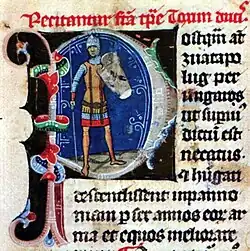 Recitantur fca tpe Toxun ducis
Postqm at
zuatapo
lug per
ungaros
ut supra
dictum est
necatus
et hugari
descendissent in panno
niam p sex annos eor ar
ma et equos meliorate